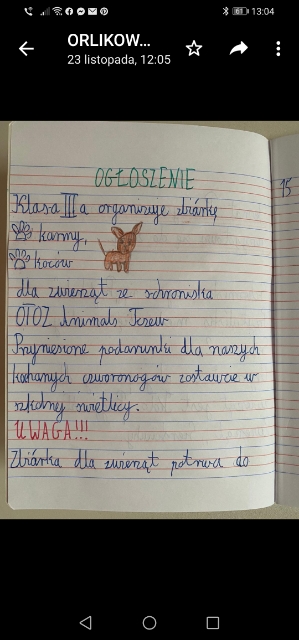 13:04
ORLIKOW...
23 listopada, 12:05
OGŁOSZENIE
Klasa III a organizuje zbiórkę
karmy,
koców
dla zwierząt ze schroniska
OTOZ Animals Tczew.
Przyniesione podarunki dla naszych
kochanych czworonogów zostawcie w
szkolnej świetlicy.
UWAGA!!!
Zbiórka dla zwierząt potrwa do
15